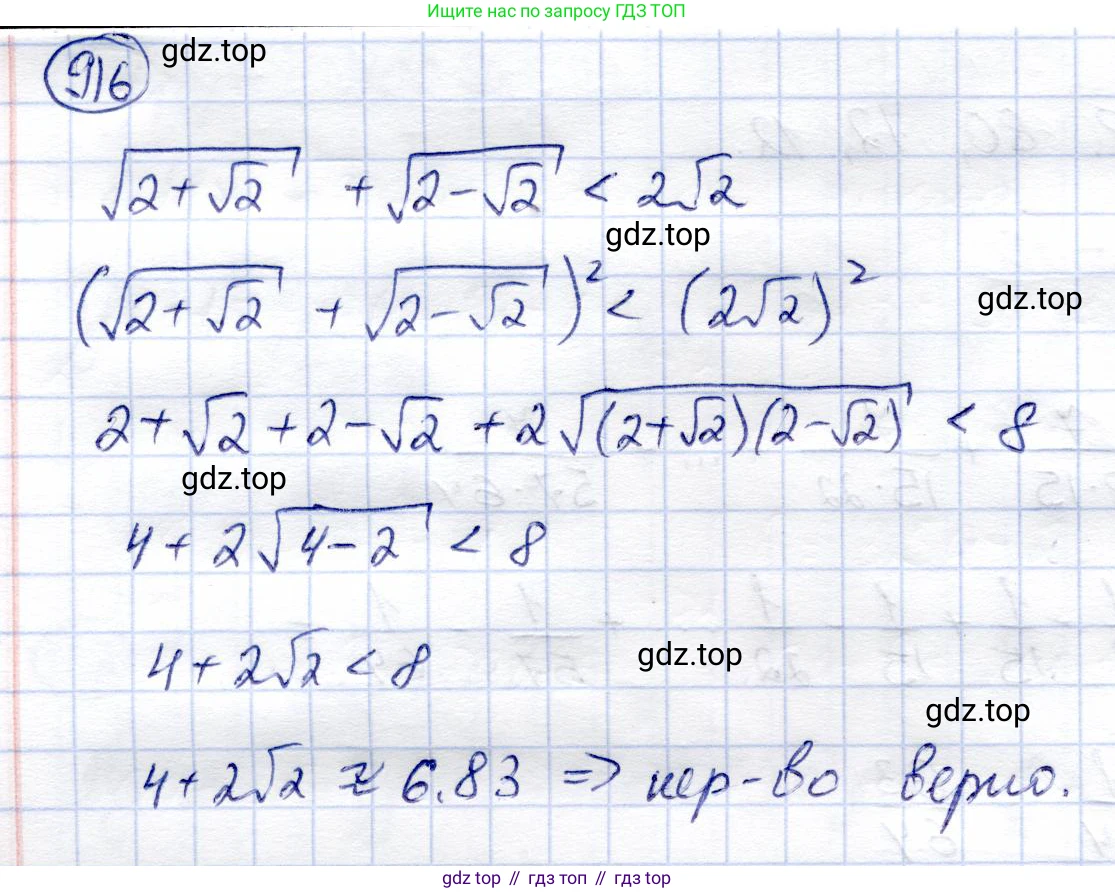 Ищите нас по запросу ГДЗ ТОП
916 gdz.top
√(2+√2) + √(2-√2) < 2√2
gdz.top
(√(2+√2) + √(2-√2))² < (2√2)²
gdz.top
2+√2+2-√2+2√((2+√2)(2-√2)) < 8
gdz.top
4+2√(4-2) < 8
4+2√2 < 8
gdz.top
gdz.top
4+2√2 ≈ 6.83 => нер-во верно.
gdz top // гдз топ // гдз top